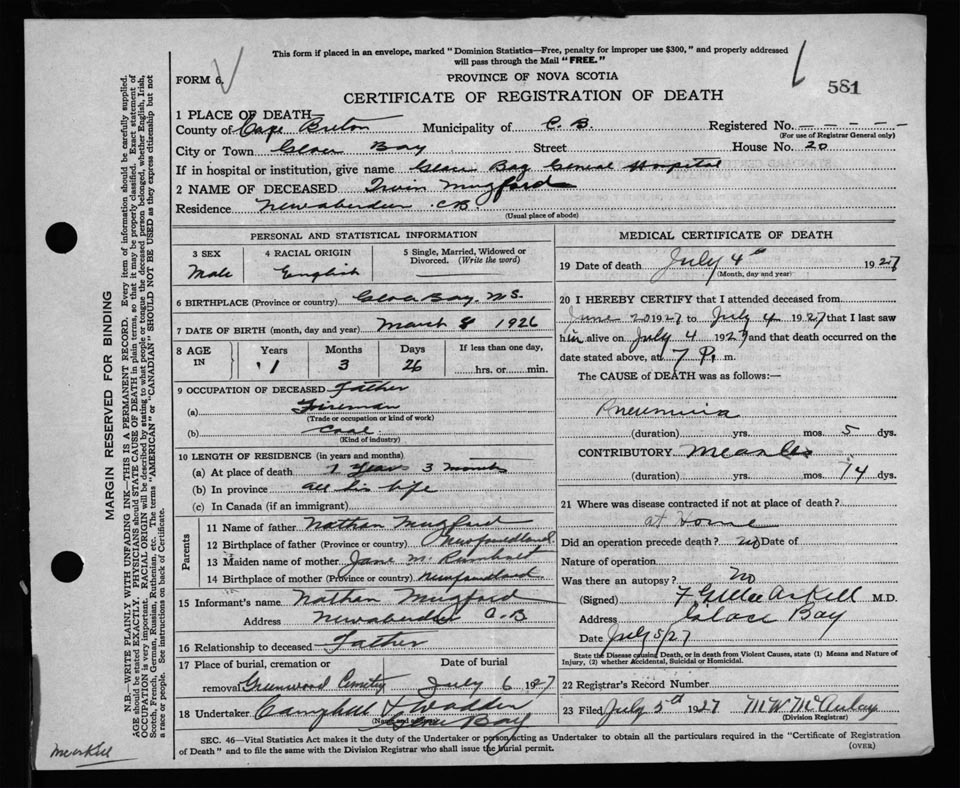 This form if placed in an envelope, marked "Dominion Statistics—Free, penalty for improper use $300," and properly addressed
will pass through the Mail "FREE."
FORM 6.
PROVINCE OF NOVA SCOTIA
581
CERTIFICATE OF REGISTRATION OF DEATH
1 PLACE OF DEATH
County of Cape Breton Municipality of C. B. Registered No.
(For use of Registrar General only)
City or Town Glace Bay Street House No. 20
If in hospital or institution, give name Glace Bay General Hospital
2 NAME OF DECEASED Irvin Mugford
Residence Newaberdeen C.B.
(Usual place of abode)
PERSONAL AND STATISTICAL INFORMATION
3 SEX 4 RACIAL ORIGIN 5 Single, Married, Widowed or
Divorced. (Write the word)
Male English
6 BIRTHPLACE (Province or country) Glace Bay. N S.
7 DATE OF BIRTH (month, day and year) March 8 1926
8 AGE IN Years Months Days If less than one day,
1 3 26 hrs. or min.
9 OCCUPATION OF DECEASED Father
(a) Fireman
(Trade or occupation or kind of work)
(b) Coal
(Kind of industry)
10 LENGTH OF RESIDENCE (in years and months)
(a) At place of death 1 Year 3 months
(b) In province all his life
(c) In Canada (if an immigrant)
Parents
11 Name of father Nathan Mugford
12 Birthplace of father (Province or country) Newfoundland
13 Maiden name of mother Jane M.
14 Birthplace of mother (Province or country) Newfoundland
15 Informant's name Nathan Mugford
Address Newaberdeen C.B
16 Relationship to deceased Father
17 Place of burial, cremation or Date of burial
removal Greenwood Cemitry July 6 1927
18 Undertaker Campbell &
Glace Bay
MEDICAL CERTIFICATE OF DEATH
19 Date of death July 4th 1927
(Month, day and year)
20 I HEREBY CERTIFY that I attended deceased from
June 20 1927 to July 4 1927 that I last saw
him alive on July 4 1927 and that death occurred on the
date stated above, at 7 P. m.
The CAUSE of DEATH was as follows:—
Pneumonia
(duration) yrs. mos. 5 dys.
CONTRIBUTORY Measles
(duration) yrs. mos. 14 dys.
21 Where was disease contracted if not at place of death?
at Home
Did an operation precede death? no Date of
Nature of operation
Was there an autopsy? no
(Signed) Arkell M.D.
Address Glace Bay
Date July 5/27
State the Disease causing Death, or in death from Violent Causes, state (1) Means and Nature of
Injury, (2) whether Accidental, Suicidal or Homicidal.
22 Registrar's Record Number
23 Filed July 5th 1927 M W McAulay
(Division Registrar)
SEC. 46—Vital Statistics Act makes it the duty of the Undertaker or person acting as Undertaker to obtain all the particulars required in the "Certificate of Registration
of Death" and to file the same with the Division Registrar who shall issue the burial permit.
(OVER)
MARGIN RESERVED FOR BINDING
N.B.—WRITE PLAINLY WITH UNFADING INK—THIS IS A PERMANENT RECORD. Every item of information should be carefully supplied.
AGE should be stated EXACTLY. PHYSICIANS should STATE CAUSE OF DEATH in plain terms, so that it may be properly classified. Exact statement of
OCCUPATION is very important. RACIAL ORIGIN will be described by stating to what people or tongue the deceased person belonged, whether English, Irish,
Scotch, French, German, Russian, Ruthenian, etc. The terms "AMERICAN" or "CANADIAN" SHOULD NOT BE USED as they express citizenship but not
a race or people. See instructions on back of Certificate.